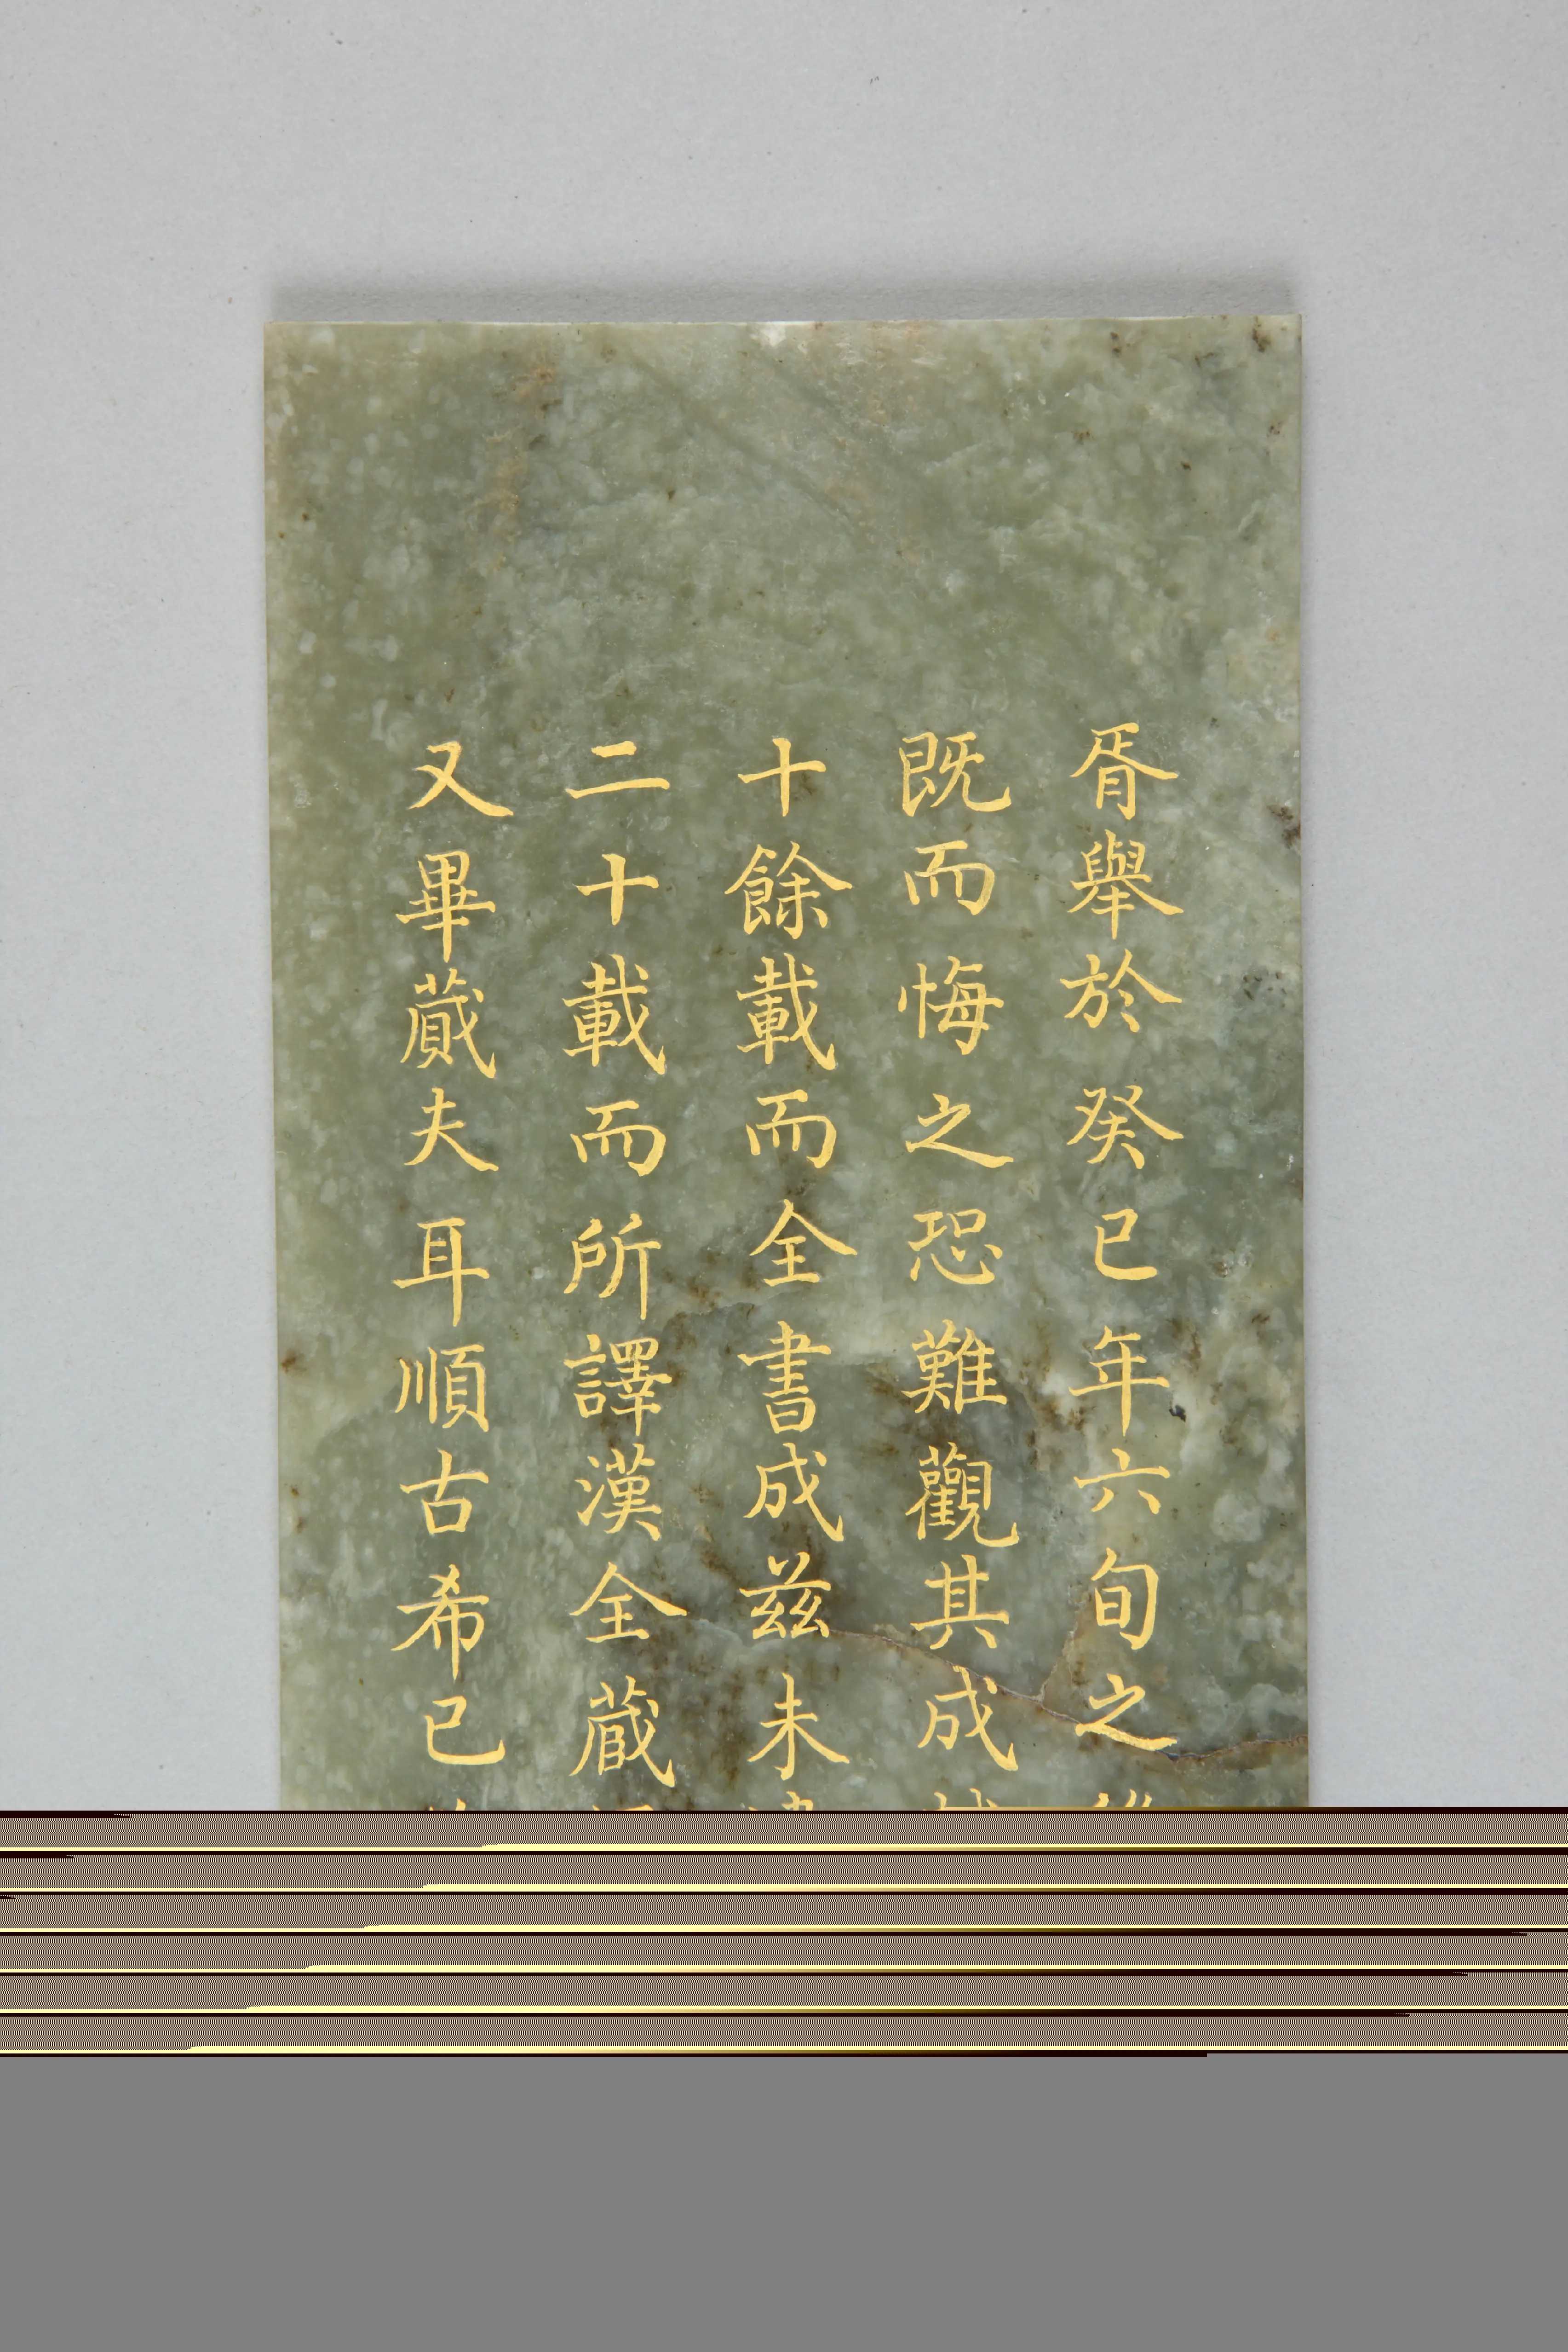 胥舉於癸巳年六旬之
既而悔之恐難觀其成
十餘載而全書成兹未
二十載而所譯漢全蕆
又畢蕆夫耳順古希已